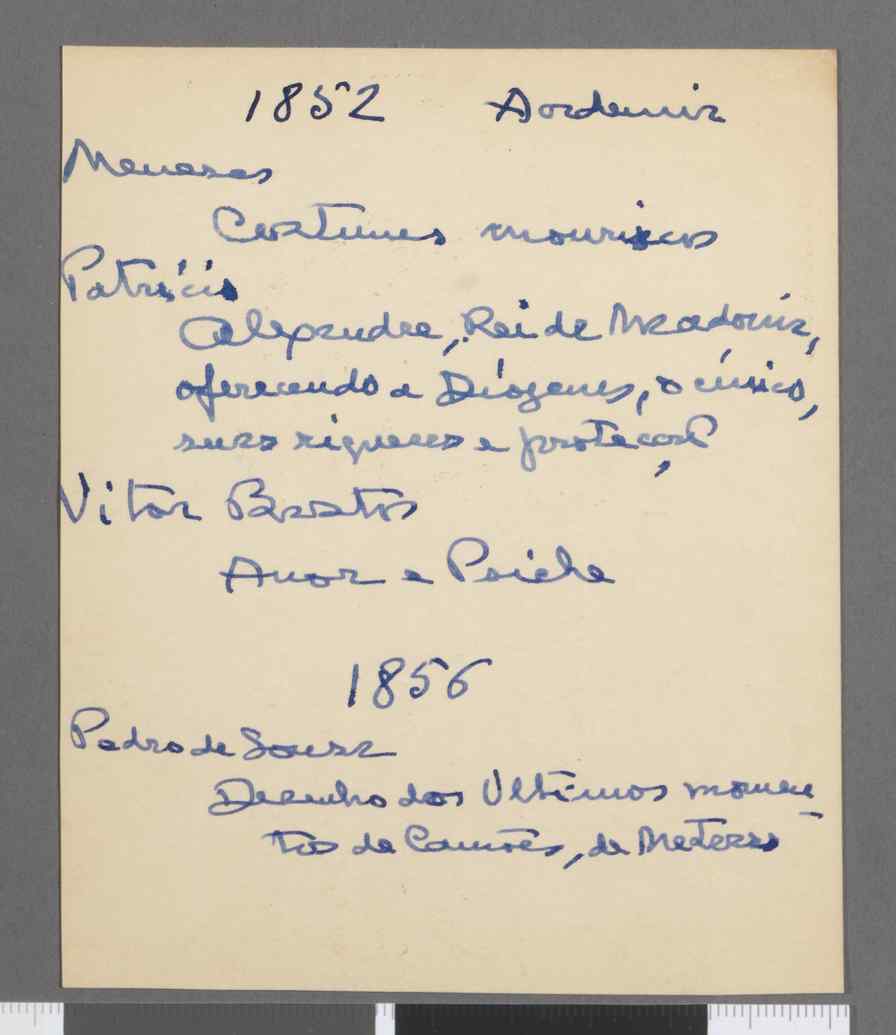 1852 Academia
Meneses
Costumes mouriscos
Patrício
Alexandre, Rei de Macedonia,
oferecendo a Diógenes, o cínico,
suas riquezas e protecção
Vitor Bastos
Amor e Psiche
1856
Pedro de Sousa
Desenho dos Ultimos momen-
tos de Camões, de Metrass